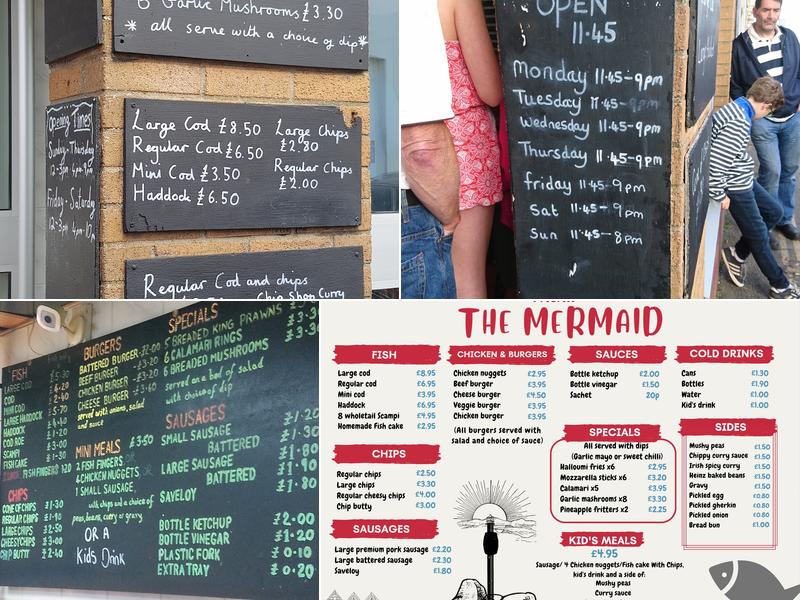 6 Garlic Mushrooms £3.30
* all serve with a choice of dip *
Opening Times
Sunday-Thursday
12-3pm 4pm-9pm
Friday-Saturday
12-3pm
Large Cod £8.50
Regular Cod £6.50
Mini Cod £3.50
Haddock £6.50
Large Chips
£2.80
Regular Chips
£2.00
Regular Cod and chips
Chip Shop Curry
OPEN
11.45
Monday 11.45-9pm
Tuesday 11.45-9pm
Wednesday 11.45-9pm
Thursday 11.45-9pm
friday 11.45-9pm
Sat 11.45-9pm
Sun 11.45-8pm
FISH
LARGE COD
COD
MINI COD
LARGE HADDOCK
HADDOCK
COD ROE
SCAMPI
FISH CAKE
CHIPS
CONE OF CHIPS £1.30
REGULAR CHIPS £1.90
LARGE CHIPS £2.50
CHEESY CHIPS £3.00
CHIP BUTTY £2.40
BURGERS
BATTERED BURGER
BEEF BURGER
CHICKEN BURGER
CHEESE BURGER
served with onions, salad
and sauce
MINI MEALS £3.50
2 FISH FINGERS
4 CHICKEN NUGGETS
1 SMALL SAUSAGE
with chips and a choice of
peas, beans, curry or gravy
OR A
Kids Drink
SPECIALS
5 BREADED KING PRAWNS
6 CALAMARI RINGS
6 BREADED MUSHROOMS
served on a bed of salad
with choice of dip
SAUSAGES
SMALL SAUSAGE £1.20
BATTERED £1.30
LARGE SAUSAGE
BATTERED
SAVELOY £1.80
BOTTLE KETCHUP £2.00
BOTTLE VINEGAR £1.20
PLASTIC FORK £0.10
EXTRA TRAY £0.20
THE MERMAID
FISH
Large cod £8.95
Regular cod £6.95
Mini cod £3.95
Haddock £6.95
8 wholetail Scampi £4.95
Homemade Fish cake £2.95
CHIPS
Regular chips £2.50
Large chips £3.30
Regular cheesy chips £4.00
Chip butty £3.00
SAUSAGES
Large premium pork sausage £2.20
Large battered sausage £2.30
Saveloy £1.80
CHICKEN & BURGERS
Chicken nuggets £2.95
Beef burger £3.95
Cheese burger £4.50
Veggie burger £3.95
Chicken burger £3.95
(All burgers served with
salad and choice of sauce)
SAUCES
Bottle ketchup £2.00
Bottle vinegar £1.50
Sachet 20p
SPECIALS
All served with dips
(Garlic mayo or sweet chilli)
Halloumi fries x6 £2.95
Mozzarella sticks x6 £3.20
Calamari x5 £3.95
Garlic mashrooms x8 £3.30
Pineapple fritters x2 £2.25
KID'S MEALS
£4.95
Sausage/ 4 Chicken nuggets/Fish cake With Chips,
kid's drink and a side of:
Mushy peas
Curry sauce
COLD DRINKS
Cans £1.30
Bottles £1.90
Water £1.00
Kid's drink £1.00
SIDES
Mushy peas £1.50
Chippy curry sauce £1.50
Irish spicy curry £1.50
Heinz baked beans £1.50
Gravy £1.50
Pickled egg £0.80
Pickled gherkin £0.80
Pickled onion £0.80
Bread bun £1.00